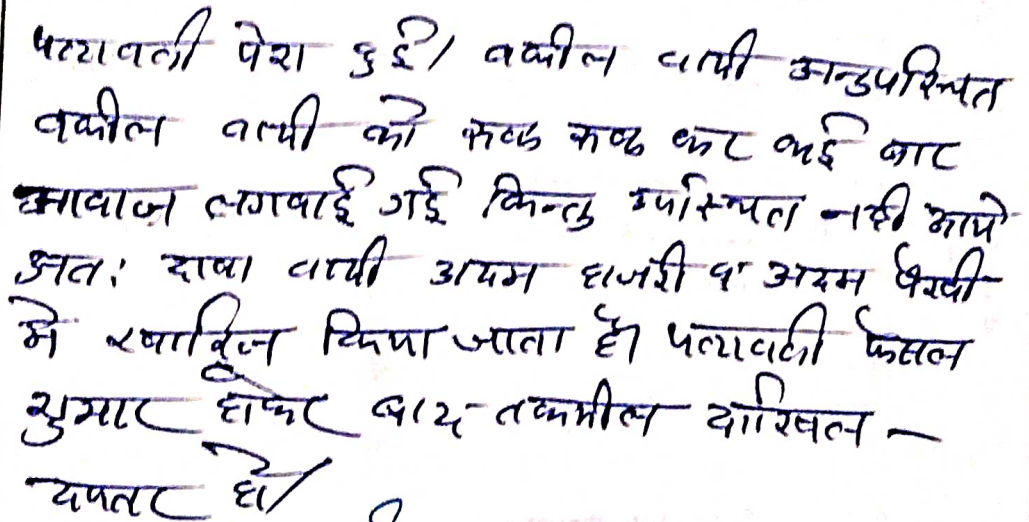 पत्रावली पेश हुई। वकील वादी अनुपस्थित
वकील वादी को रुक रुक कर कई बार
आवाज लगवाई गई किन्तु उपस्थित नही आये
अत: दावा वादी अदम हाजरी व अदम पैरवी
मे खारिज किया जाता है। पत्रावली फैसल
शुमार होकर बाद तकमील दाखिल -
दफ्तर हो।